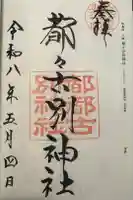 奉拝
都々古別神社
都都古別神社
令和八年五月四日